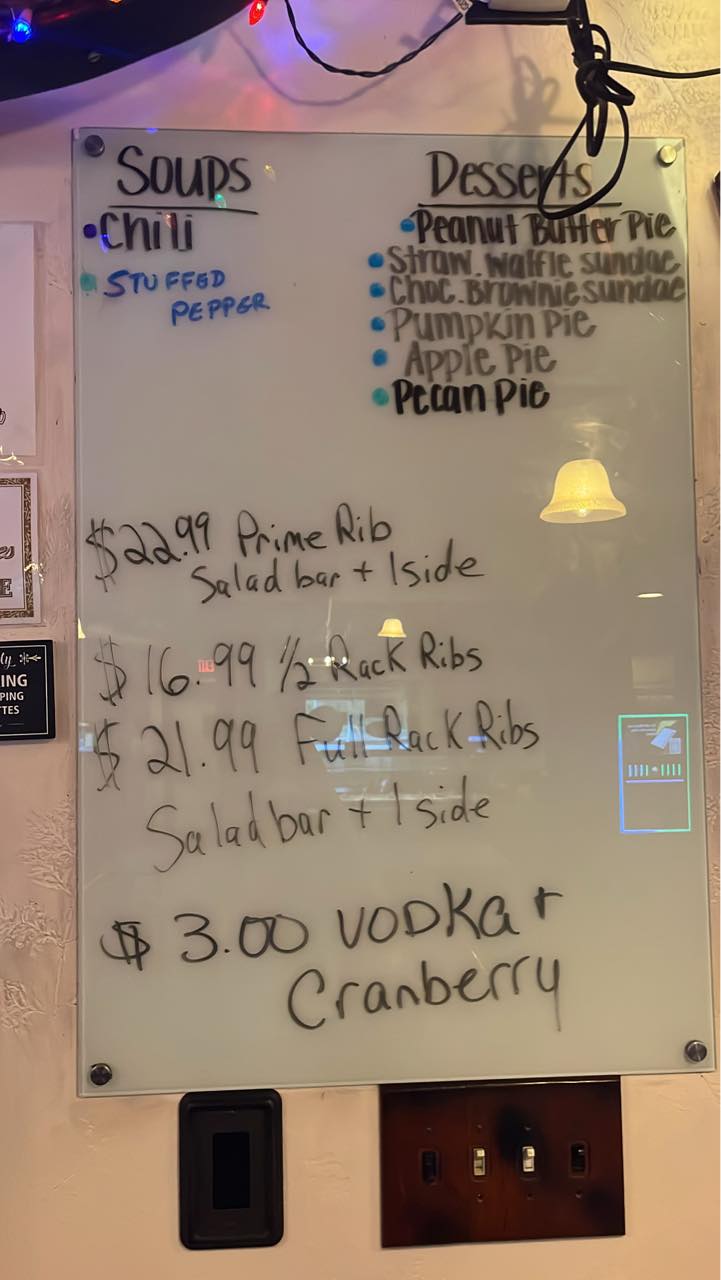 Soups
•Chili
• STUFFED
PEPPER
Desserts
•Peanut Butter Pie
•Straw. waffle sundae
•Choc. Brownie sundae
•Pumpkin Pie
• Apple Pie
•Pecan Pie
$22.99 Prime Rib
Salad bar + 1 side
$16.99 1/2 Rack Ribs
$ 21.99 Full Rack Ribs
Salad bar + 1 side
$ 3.00 VODKa +
Cranberry
ING
PING
TTES